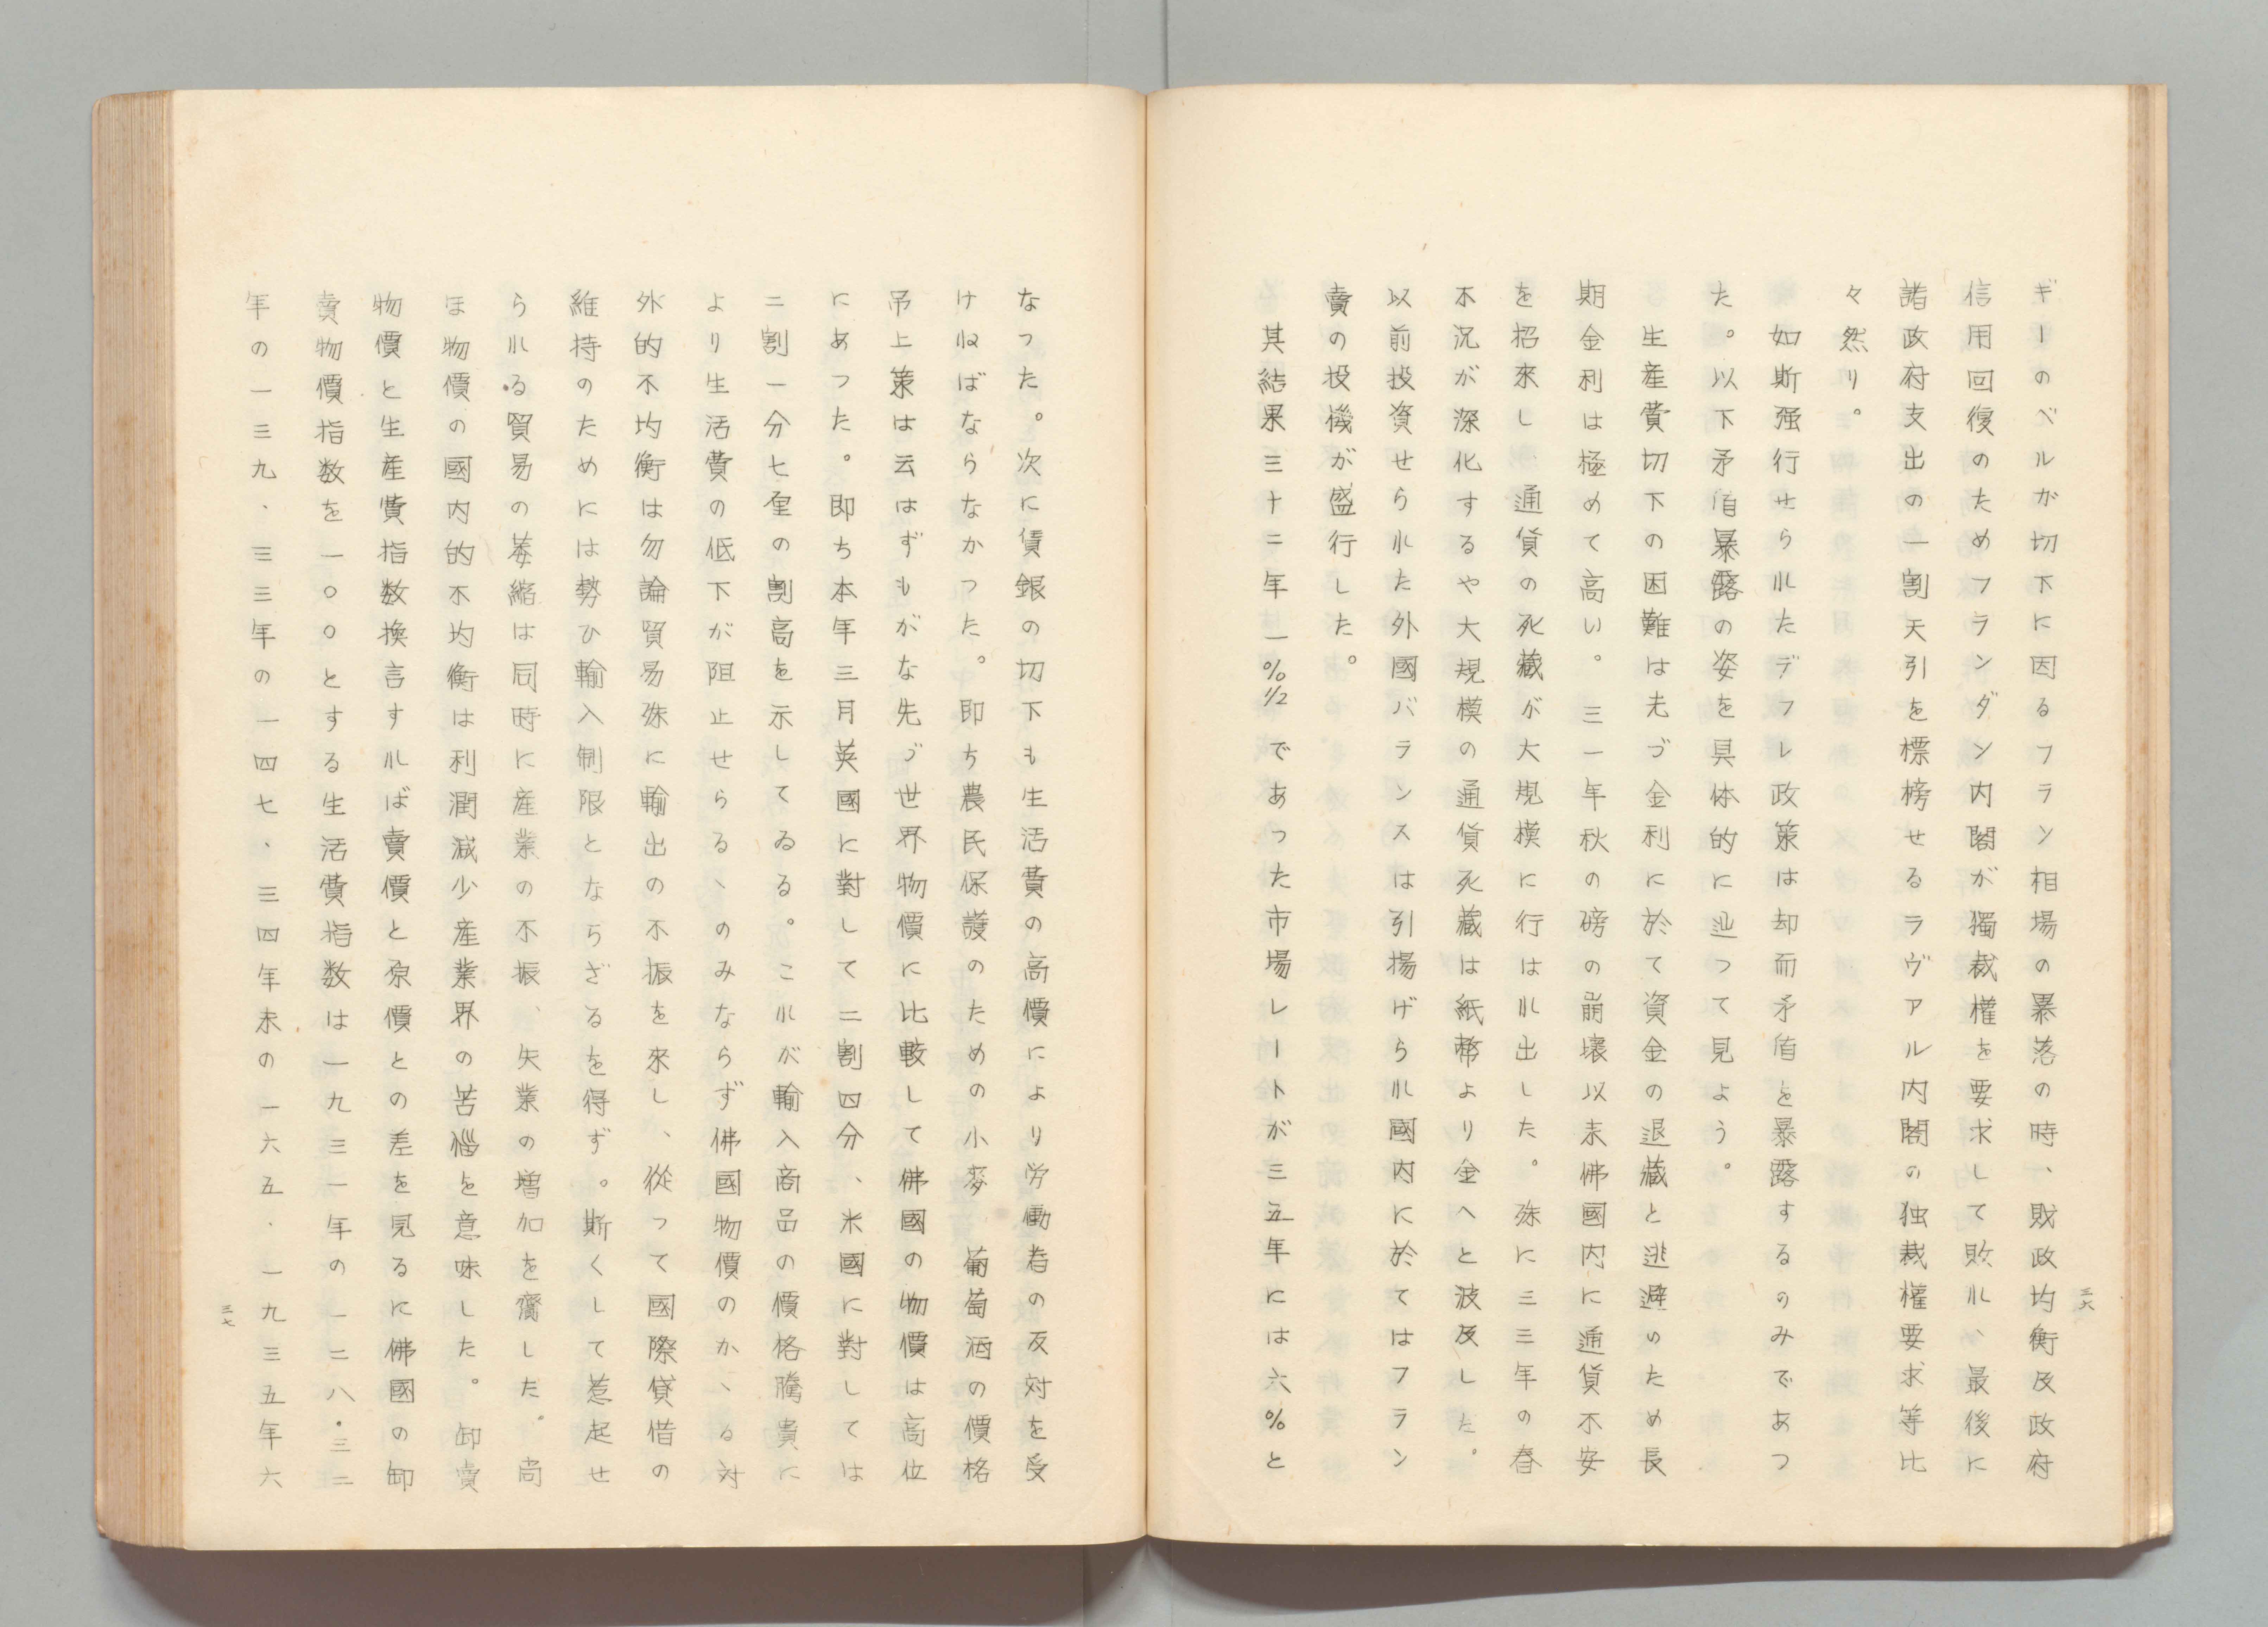 ギーのベルガ切下に因るフラン相場の暴落の時、財政均衡及政府
信用回復のためフランダン内閣が獨裁權を要求して敗れ、最後に
諸政府支出の一割天引を標榜せるラヴァル内閣の独裁權要求等比
々然り。
如斯强行せられたデフレ政策は却而矛盾を暴露するのみであつ
た。以下矛盾暴露の姿を具体的に辿って見よう。
生産費切下の困難は先づ金利に於て資金の退藏と逃避のため長
期金利は極めて高い。三一年秋の磅の崩壊以来佛國内に通貨不安
を招來し、通貨の死藏が大規模に行はれ出した。殊に三三年の春
不況が深化するや大規模の通貨死藏は紙幣より金へと波及した。
以前投資せられた外國バランスは引揚げられ國内に於てはフラン
賣の投機が盛行した。
其結果三十二年一%½であった市場レートが三五年には六%と
三六
なった。次に賃銀の切下も生活費の高價により労働者の反対を受
けねばならなかった。即ち農民保護のための小麥、葡萄酒の價格
吊上策は云はずもがな先づ世界物價に比較して佛國の物價は高位
にあつた。即ち本年三月英國に對して二割四分、米國に對しては
二割一分七厘の割高を示してゐる。これが輸入商品の價格騰貴に
より生活費の低下が阻止せらるゝのみならず佛國物價のかゝる対
外的不均衡は勿論貿易殊に輸出の不振を來し、從って國際貸借の
維持のためには勢ひ輸入制限とならざるを得ず。斯くして惹起せ
られる貿易の萎縮は同時に産業の不振、失業の増加を齎した。尚
ほ物價の國内的不均衡は利潤減少産業界の苦惱を意味した。卸賣
物價と生産費指数換言すれば賣價と原價との差を見るに佛國の卸
賣物價指数を一〇〇とする生活費指数は一九三一年の一二八・三二
年の一三九、三三年の一四七、三四年末の一六五・一九三五年六
三七